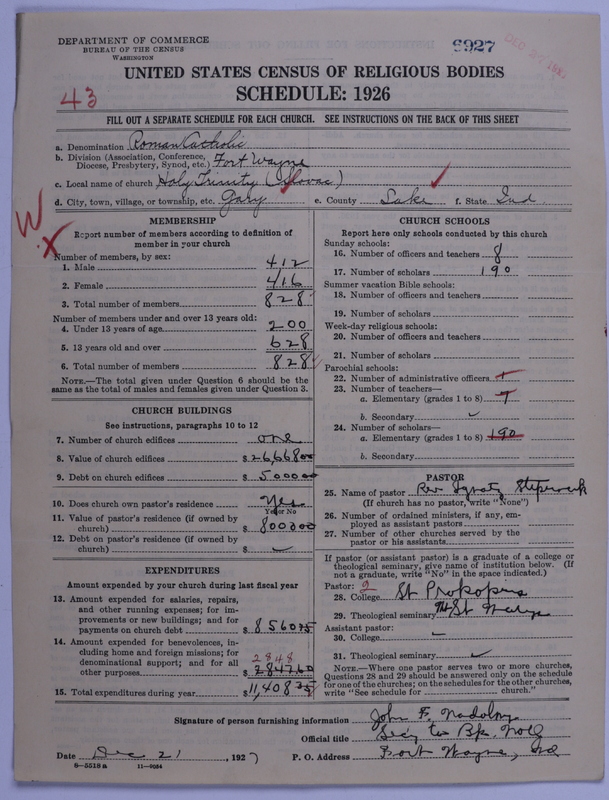 DEPARTMENT OF COMMERCE
BUREAU OF THE CENSUS
WASHINGTON
6927
UNITED STATES CENSUS OF RELIGIOUS BODIES
SCHEDULE: 1926
43
FILL OUT A SEPARATE SCHEDULE FOR EACH CHURCH. SEE INSTRUCTIONS ON THE BACK OF THIS SHEET
a. Denomination Roman Catholic
b. Division (Association, Conference, Diocese, Presbytery, Synod, etc.) Fort Wayne
c. Local name of church Holy Trinity (Slovac)
d. City, town, village, or township, etc. Gary e. County Lake f. State Ind
W
X
MEMBERSHIP
Report number of members according to definition of
member in your church
Number of members, by sex:
1. Male 412
2. Female 416
3. Total number of members 828
Number of members under and over 13 years old:
4. Under 13 years of age 200
5. 13 years old and over 628
6. Total number of members 828
NOTE.—The total given under Question 6 should be the
same as the total of males and females given under Question 3.
CHURCH BUILDINGS
See instructions, paragraphs 10 to 12
7. Number of church edifices one
8. Value of church edifices $26,66800
9. Debt on church edifices $500000
10. Does church own pastor's residence Yes
Yes or No
11. Value of pastor's residence (if owned by
church) $800000
12. Debt on pastor's residence (if owned by
church) $
EXPENDITURES
Amount expended by your church during last fiscal year
13. Amount expended for salaries, repairs,
and other running expenses; for im-
provements or new buildings; and for
payments on church debt $856075
14. Amount expended for benevolences, in-
cluding home and foreign missions; for
denominational support; and for all 2848
other purposes $284760
15. Total expenditures during year $11,40875
CHURCH SCHOOLS
Report here only schools conducted by this church
Sunday schools:
16. Number of officers and teachers 8
17. Number of scholars 190
Summer vacation Bible schools:
18. Number of officers and teachers
19. Number of scholars
Week-day religious schools:
20. Number of officers and teachers
21. Number of scholars
Parochial schools:
22. Number of administrative officers 1
23. Number of teachers—
a. Elementary (grades 1 to 8) 7
b. Secondary
24. Number of scholars—
a. Elementary (grades 1 to 8) 190
b. Secondary
PASTOR
25. Name of pastor Rev Ignatz
(If church has no pastor, write "None")
26. Number of ordained ministers, if any, em-
ployed as assistant pastors
27. Number of other churches served by the
pastor or his assistants
If pastor (or assistant pastor) is a graduate of a college or
theological seminary, give name of institution below. (If
not a graduate, write "No" in the space indicated.)
Pastor: 2
28. College St Prokopus
29. Theological seminary Mt St Marys
Assistant pastor:
30. College
31. Theological seminary
NOTE.—Where one pastor serves two or more churches,
Questions 28 and 29 should be answered only on the schedule
for one of the churches; on the schedules for the other churches,
write "See schedule for church."
Signature of person furnishing information John F. Nadolny
Official title Secy to Bp. Noll
Date Dec 21, 1927 P. O. Address Fort Wayne, Ind
8—5518a 11—9034